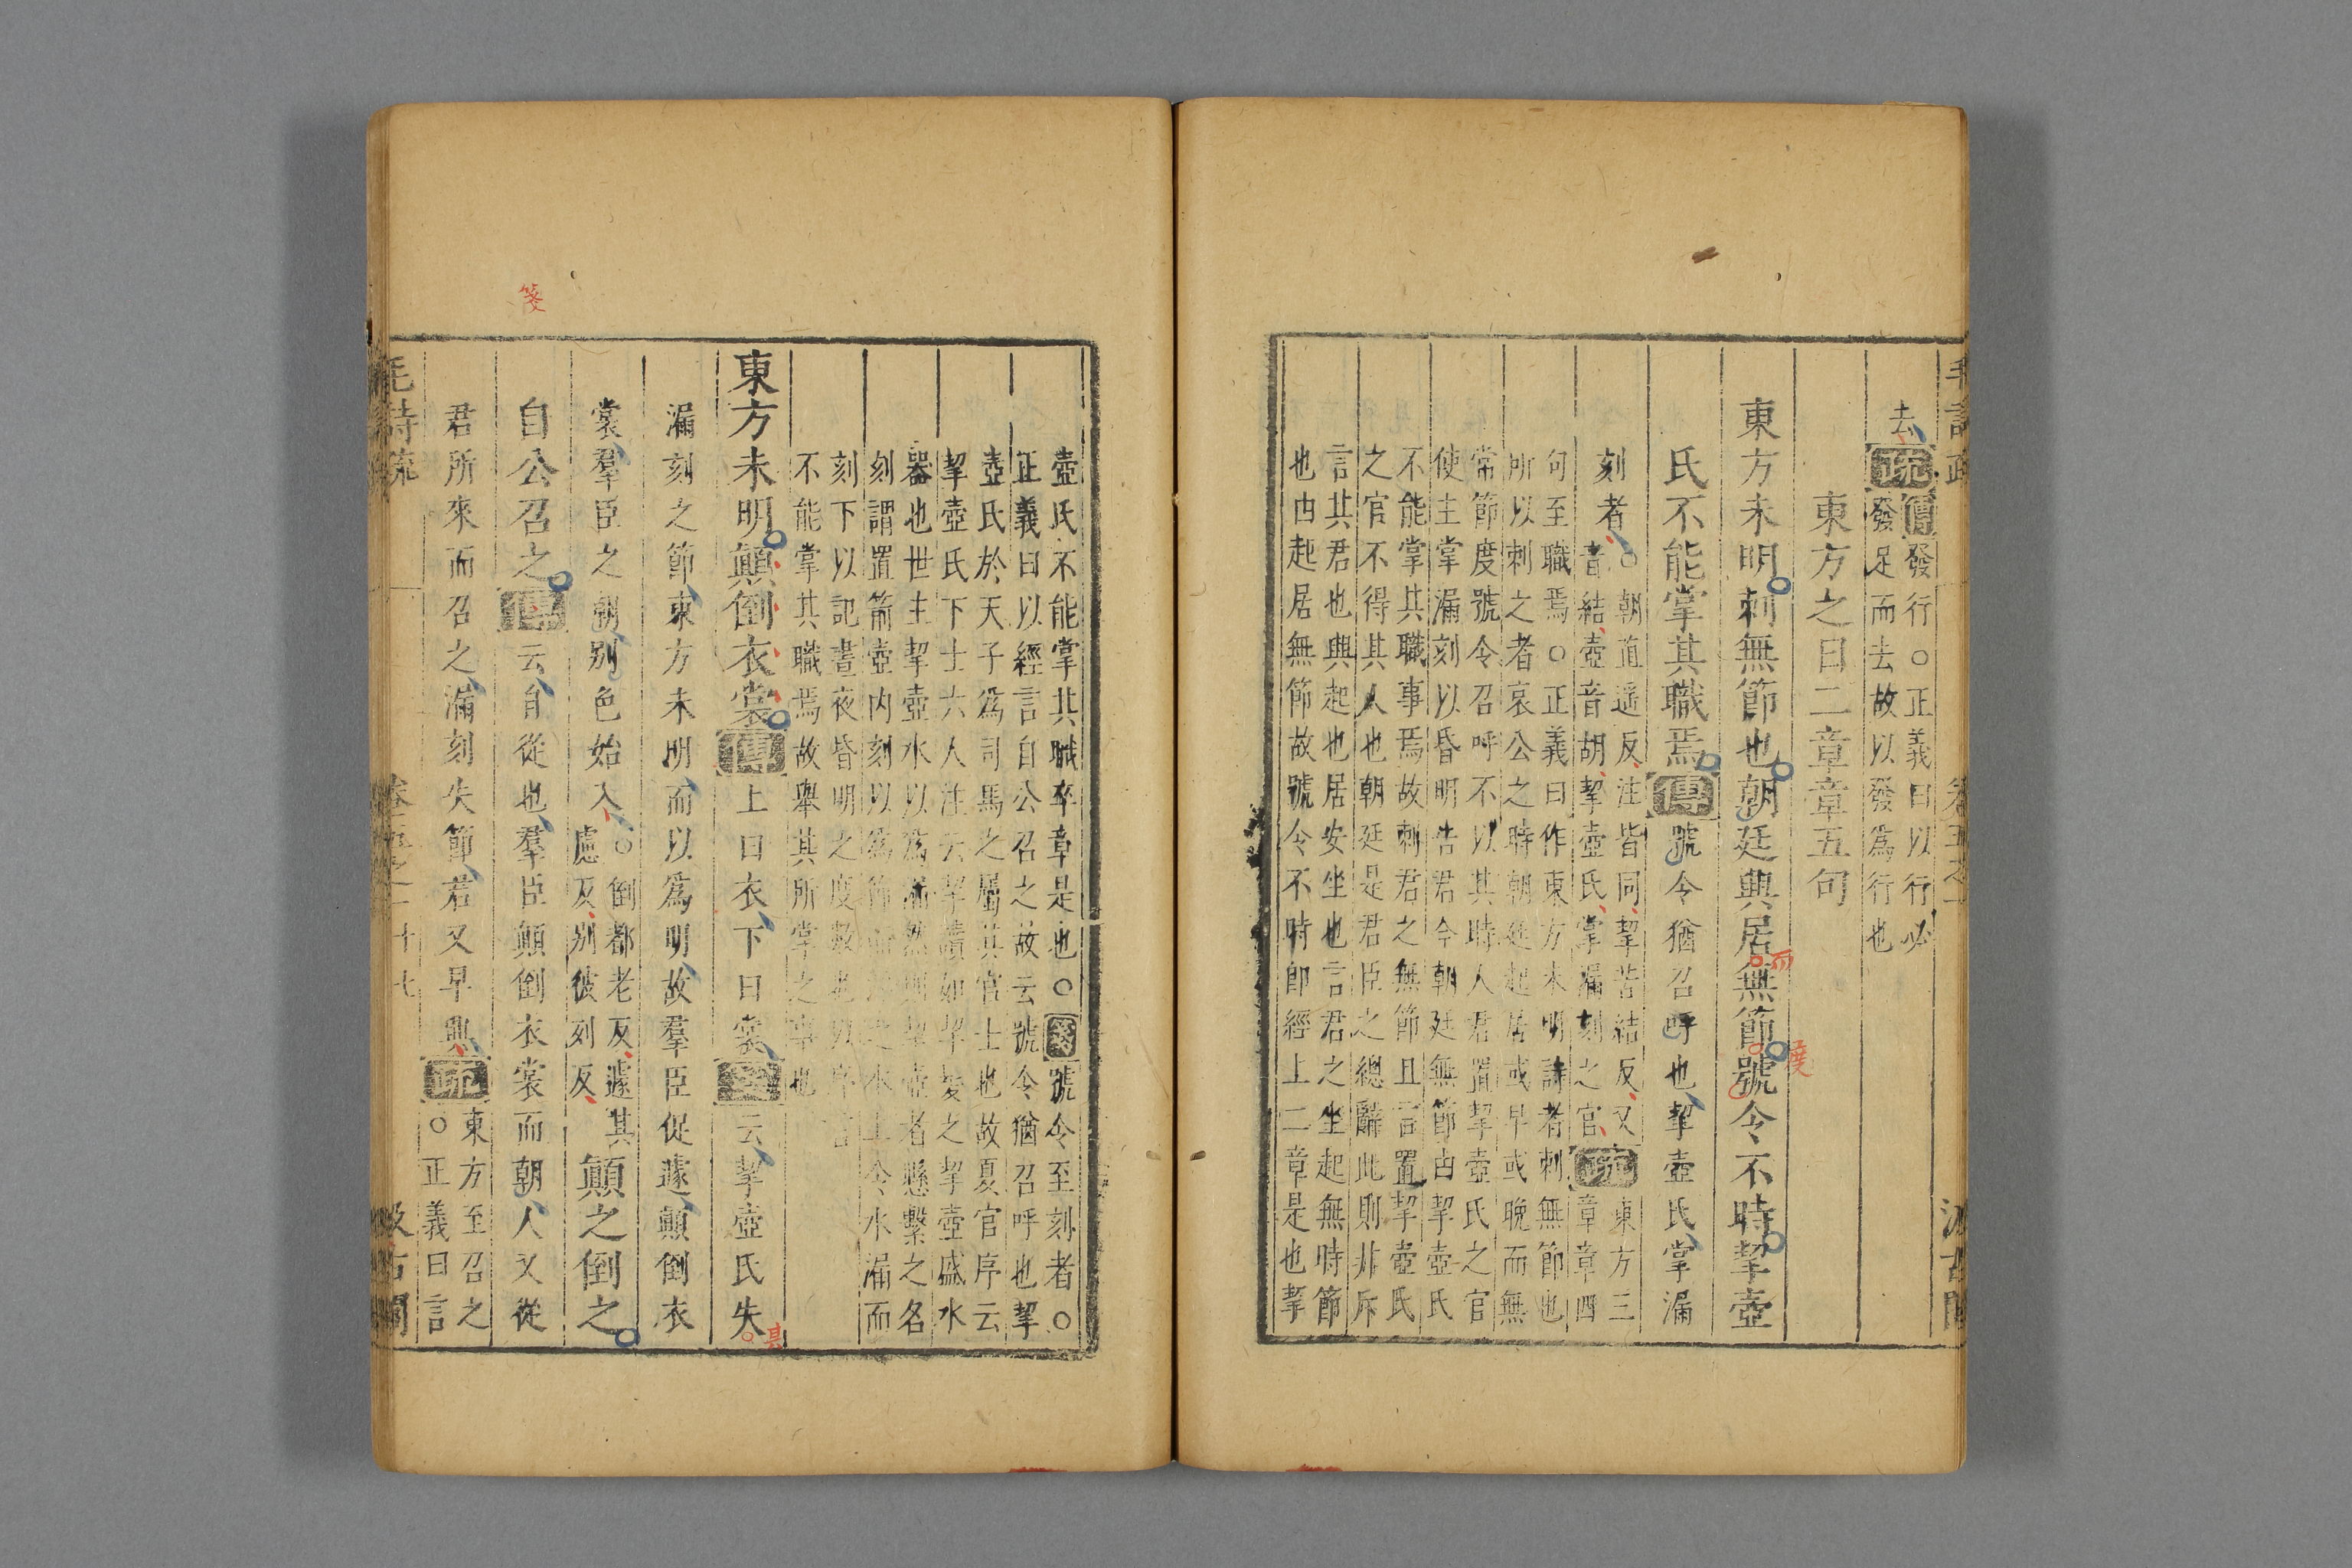 去疏傳發行○正義曰以行必
發足而去故以發爲行也
東方之日二章章五句
東方未明刺無節也朝廷興居無節號令不時挈壺
氏不能掌其職焉傳號令猶召呼也挈壺氏掌漏
刻者○朝直遥反注皆同挈苦結反又
音結壺音胡挈壺氏掌漏刻之官疏東方三
章章四
句至職焉○正義曰作東方未明詩者刺無節也
所以刺之者哀公之時朝廷起居或早或晚而無
常節度號令召呼不以其時人君置挈壺氏之官
使主掌漏刻以昏明告君今朝廷無節由挈壺氏
不能掌其職事焉故刺君之無節且言置挈壺氏
之官不得其人也朝廷是君臣之總辭此則非斥
言其君也興起也居安坐也言君之坐起無時節
也由起居無節故號令不時卽經上二章是也挈
壺氏不能掌其職卒章是也○箋號令至刻者○
正義曰以經言自公召之故云號令猶召呼也挈
壺氏於天子爲司馬之屬其官士也故夏官序云
挈壺氏下士六人注云挈讀如挈髮之挈壺盛水
器也世主挈壺水以爲漏然則挈壺者懸繫之名
刻謂置箭壺內刻以爲節而浮之水上令水漏而
刻下以記晝夜昏明之度數也以序言
不能掌其職焉故舉其所掌之事也
東方未明顛倒衣裳傳上曰衣下曰裳箋云挈壺氏失
其
漏刻之節東方未明而以爲明故羣臣促遽顛倒衣
裳羣臣之朝別色始入○倒都老反遽其
慮反別彼列反顛之倒之
自公召之傳云自從也羣臣顛倒衣裳而朝人又從
箋
君所來而召之漏刻失節君又早興疏東方至召之
○正義曰言
毛詩疏
卷五之一
十七
汲古閣